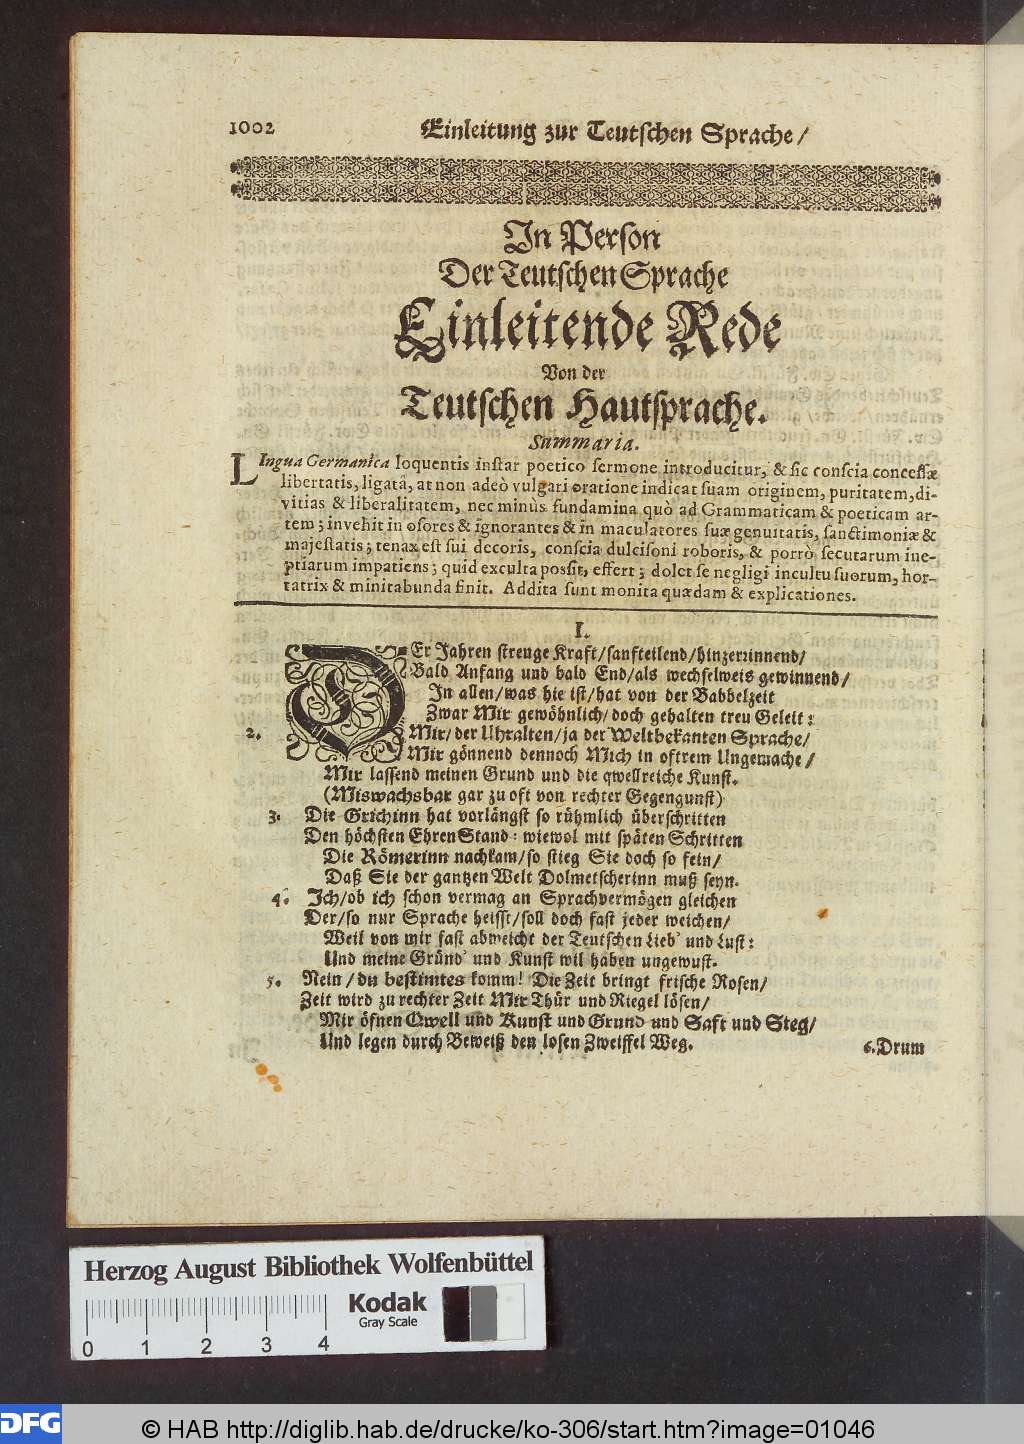 1002 Einleitung zur Teutſchen Sprache/
In Perſon
Der Teutſchen Sprache
Einleitende Rede
Von der
Teutſchen Hautſprache.
Summaria.
LIngua Germanica loquentis inſtar poetico ſermone introducitur, & ſic conſcia conceſſæ
libertatis, ligatâ, at non adeò vulgari oratione indicat ſuam originem, puritatem, di-
vitias & liberalitatem, nec minùs fundamina quò ad Grammaticam & poeticam ar-
tem; invehit in oſores & ignorantes & in maculatores ſuæ genuitatis, ſanctimoniæ &
majeſtatis; tenax eſt ſui decoris, conſcia dulciſoni roboris, & porrò ſecutarum ine-
ptiarum impatiens; quid exculta poſſit, effert; dolet ſe negligi incultu ſuorum, hor-
tatrix & minitabunda finit. Addita ſunt monita quædam & explicationes.
I.
DEr Jahren ſtrenge Kraft/ſanfteilend/hinzerrinnend/
Bald Anfang und bald End/als wechſelweis gewinnend/
In allen/was hie iſt/hat von der Babbelzeit
Zwar Mir gewöhnlich/doch gehalten treu Geleit:
2. Mir/der Uhralten/ja der Weltbekanten Sprache/
Mir gönnend dennoch Mich in oftrem Ungemache/
Mir laſſend meinen Grund und die qwellreiche Kunſt.
(Miswachsbar gar zu oft von rechter Gegengunſt)
3. Die Grichinn hat vorlängſt ſo rühmlich überſchritten
Den höchſten EhrenStand: wiewol mit ſpäten Schritten
Die Römerinn nachkam/ſo ſtieg Sie doch ſo fein/
Daß Sie der gantzen Welt Dolmetſcherinn muß ſeyn.
4. Ich/ob ich ſchon vermag an Sprachvermögen gleichen
Der/ſo nur Sprache heiſſt/ſoll doch faſt jeder weichen/
Weil von mir faſt abweicht der Teutſchen Lieb' und Luſt:
Und meine Gründ' und Kunſt wil haben ungewuſt.
5. Nein/du beſtimtes komm! Die Zeit bringt friſche Roſen/
Zeit wird zu rechter Zeit Mir Thür und Riegel löſen/
Mir öfnen Qwell und Kunſt und Grund und Saft und Steg/
Und legen durch Beweiß den loſen Zweiffel Weg.
6. Drum
Herzog August Bibliothek Wolfenbüttel
Kodak
Gray Scale
0 1 2 3 4
DFG © HAB http://diglib.hab.de/drucke/ko-306/start.htm?image=01046